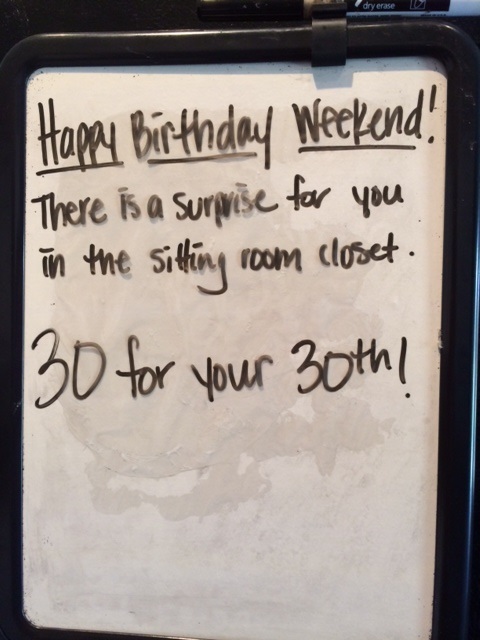 dry erase
Happy Birthday Weekend!
There is a surprise for you
in the sitting room closet.
30 for your 30th!